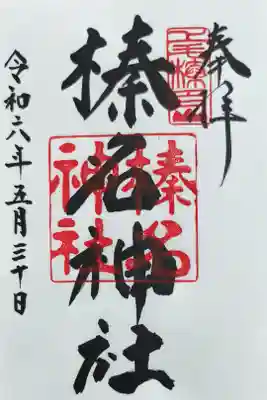 奉拝
榛名神社
榛名
神社
令和六年五月三十日